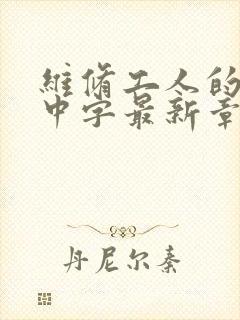 維脩工人的
中字最新章
丹尼尔秦